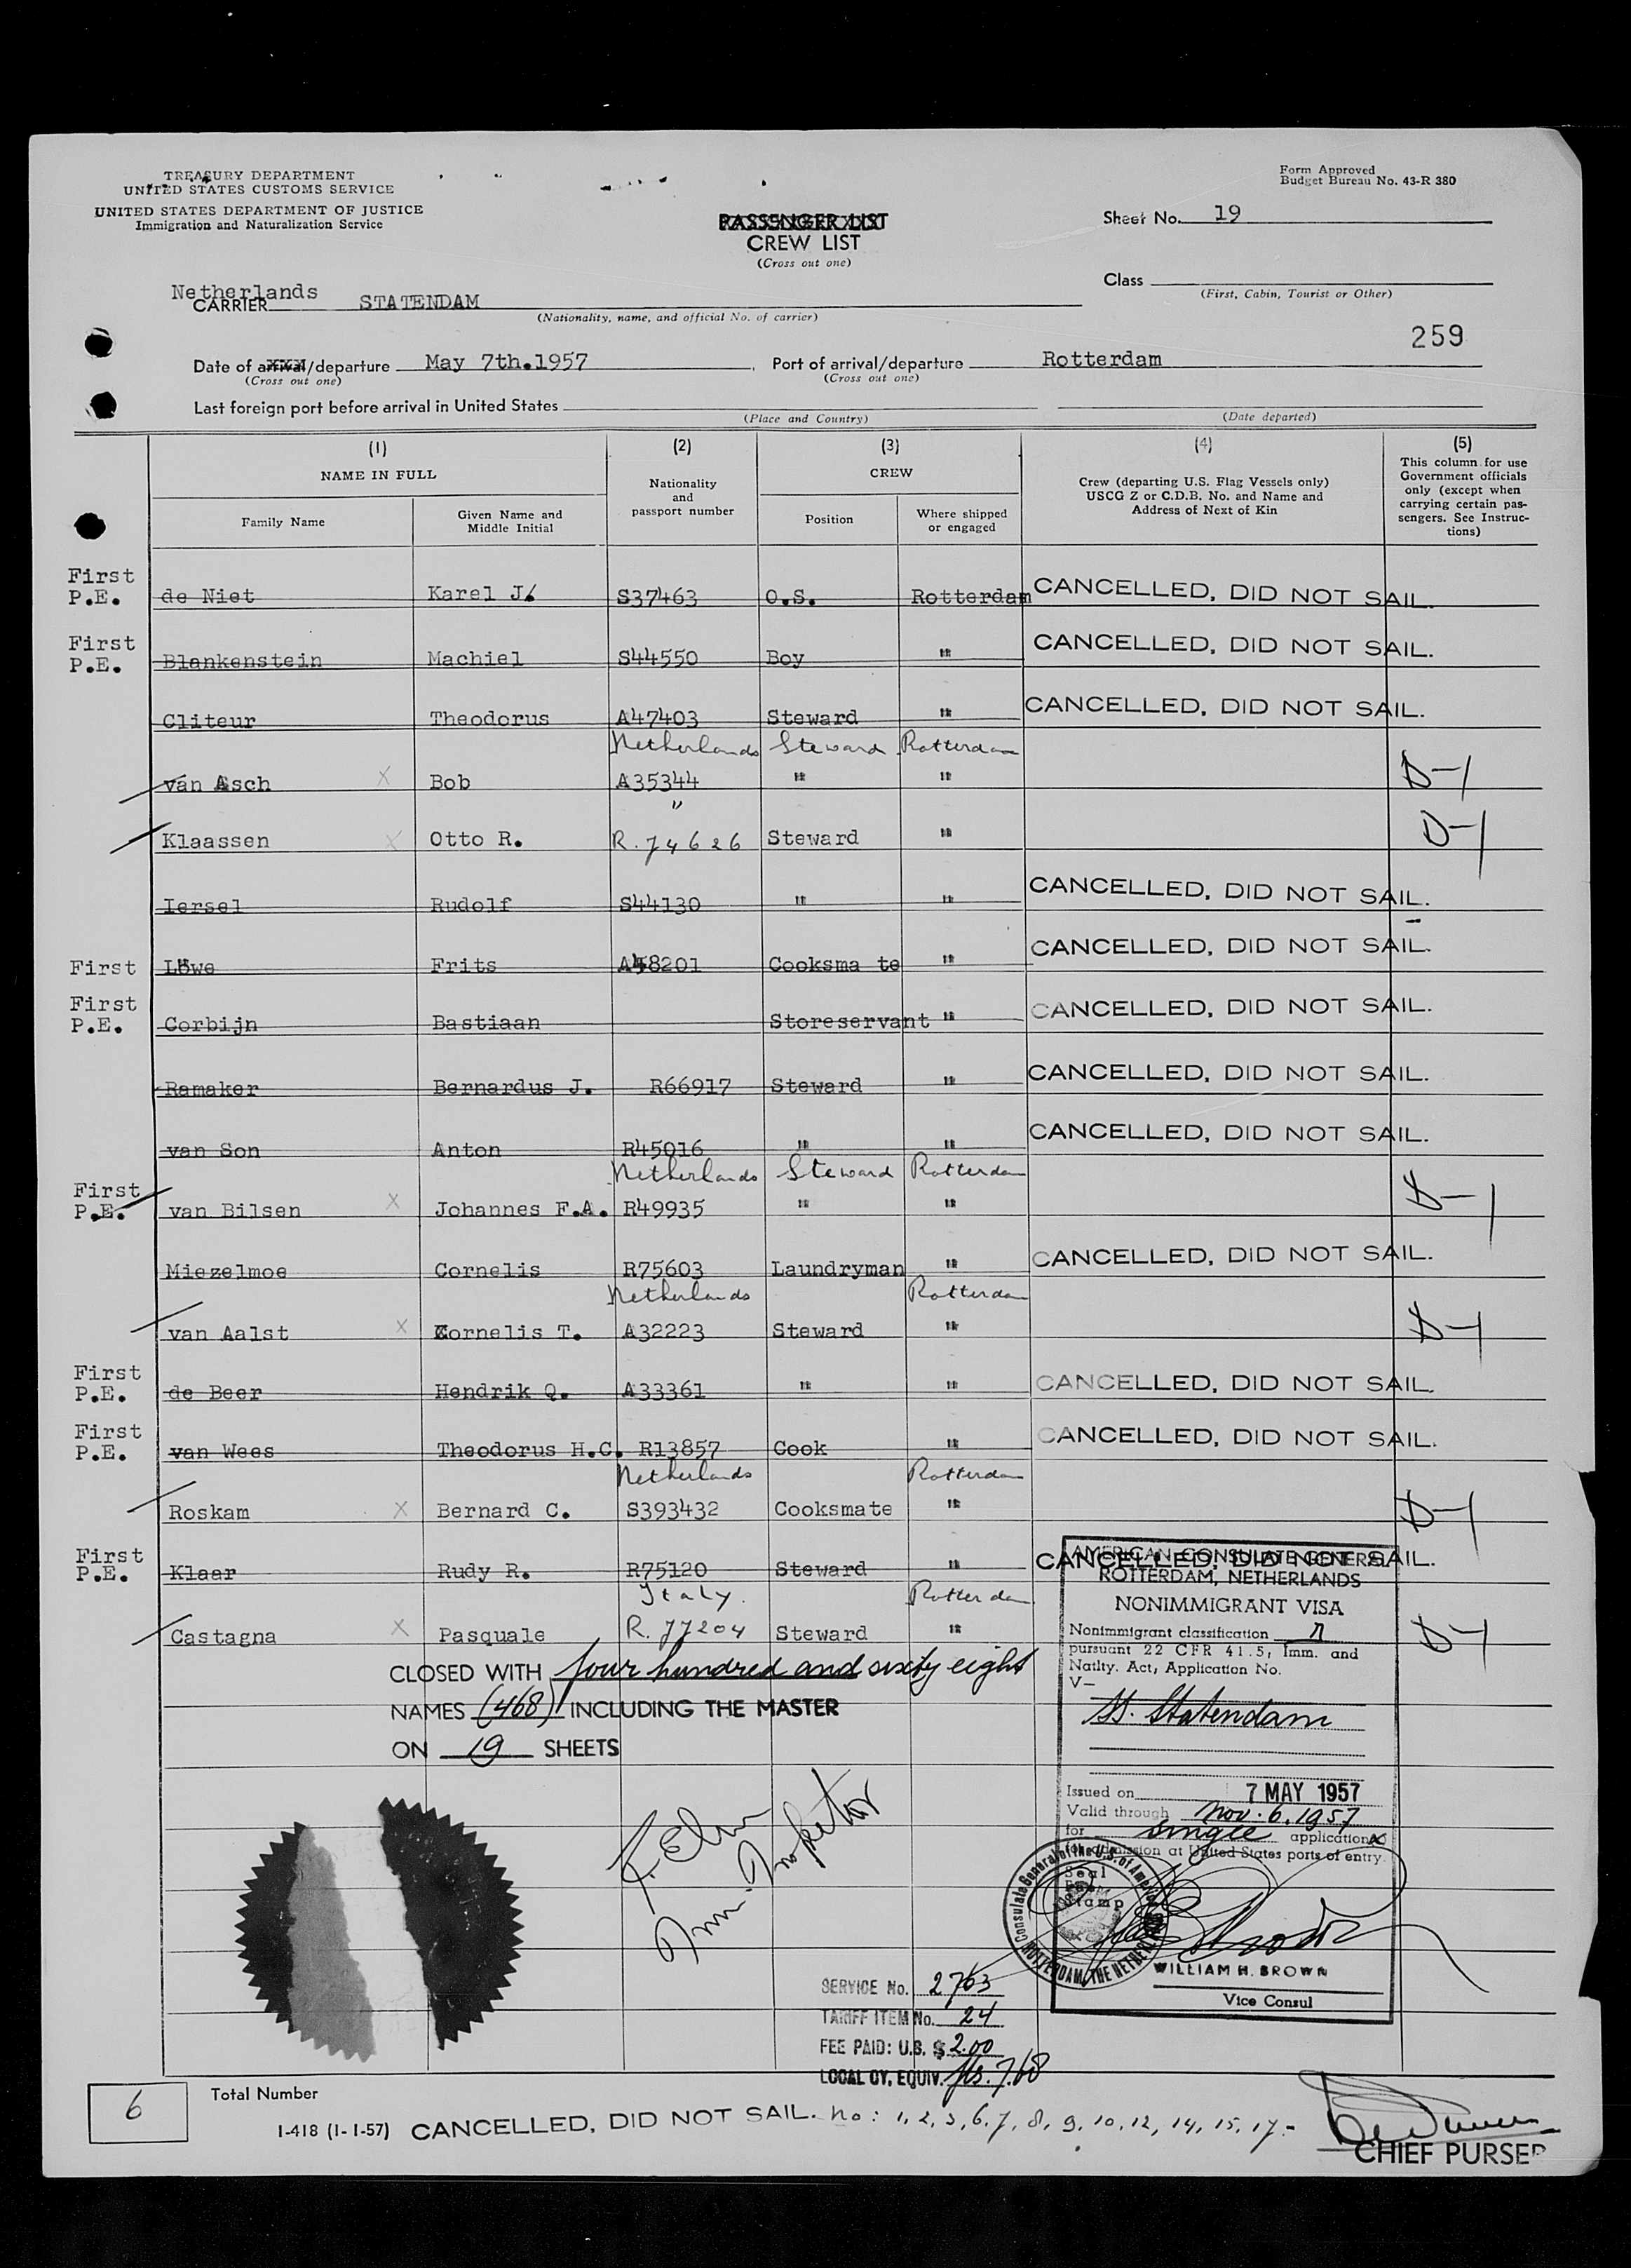 TREASURY DEPARTMENT
UNITED STATES CUSTOMS SERVICE
UNITED STATES DEPARTMENT OF JUSTICE
Immigration and Naturalization Service
Form Approved
Budget Bureau No. 43-R 380
PASSENGER LIST
CREW LIST
(Cross out one)
Sheet No. 19
Class
(First, Cabin, Tourist or Other)
Netherlands
CARRIER STATENDAM
(Nationality, name, and official No. of carrier)
259
Date of arrival/departure May 7th.1957 Port of arrival/departure Rotterdam
(Cross out one) (Cross out one)
Last foreign port before arrival in United States
(Place and Country) (Date departed)
(1) (2) (3) (4) (5)
NAME IN FULL Nationality and passport number CREW Crew (departing U.S. Flag Vessels only) USCG Z or C.D.B. No. and Name and Address of Next of Kin This column for use Government officials only (except when carrying certain passengers. See Instructions)
Family Name Given Name and Middle Initial Position Where shipped or engaged
First
P.E. de Niet Karel J. S37463 O.S. Rotterdam CANCELLED, DID NOT SAIL.
First
P.E. Blankenstein Machiel S44550 Boy " CANCELLED, DID NOT SAIL.
Cliteur Theodorus A47403 Steward " CANCELLED, DID NOT SAIL.
Netherlands Steward Rotterdam
van Asch X Bob A35344 " " D-1
"
Klaassen X Otto R. R.74626 Steward " D-1
Iersel Rudolf S44130 " " CANCELLED, DID NOT SAIL.
First Löwe Frits A48201 Cooksmate " CANCELLED, DID NOT SAIL.
First
P.E. Corbijn Bastiaan Storeservant " CANCELLED, DID NOT SAIL.
Ramaker Bernardus J. R66917 Steward " CANCELLED, DID NOT SAIL.
van Son Anton R45016 " " CANCELLED, DID NOT SAIL.
Netherlands Steward Rotterdam
First
P.E. van Bilsen X Johannes F.A. R49935 " " D-1
Miezelmoe Cornelis R75603 Laundryman " CANCELLED, DID NOT SAIL.
Netherlands Rotterdam
van Aalst X Cornelis T. A32223 Steward " D-1
First
P.E. de Beer Hendrik Q. A33361 " " CANCELLED, DID NOT SAIL.
First
P.E. van Wees Theodorus H.C. R13857 Cook " CANCELLED, DID NOT SAIL.
Netherlands Rotterdam
Roskam X Bernard C. S393432 Cooksmate " D-1
First
P.E. Klaar Rudy R. R75120 Steward " CANCELLED, DID NOT SAIL.
Italy. Rotterdam
Castagna X Pasquale R.77204 Steward " D-1
CLOSED WITH four hundred and sixty eight
NAMES (468) INCLUDING THE MASTER
ON 19 SHEETS
AMERICAN CONSULATE GENERAL
ROTTERDAM, NETHERLANDS
NONIMMIGRANT VISA
Nonimmigrant classification D
pursuant 22 CFR 41.5, Imm. and
Natlty. Act, Application No.
V-
SS. Statendam
Issued on 7 MAY 1957
Valid through Nov. 6. 1957
for single applications
for admission at United States ports of entry.
Seal
Stamp
Consulate General of the U.S. of America
ROTTERDAM, THE NETHERLANDS
WILLIAM H. BROWN
Vice Consul
SERVICE No. 2763
TARIFF ITEM No. 24
FEE PAID: U.S. $ 2.00
LOCAL CY. EQUIV. fls. 7.68
6 Total Number
I-418 (1-1-57) CANCELLED, DID NOT SAIL. no: 1, 2, 3, 6, 7, 8, 9, 10, 12, 14, 15, 17.-
CHIEF PURSER